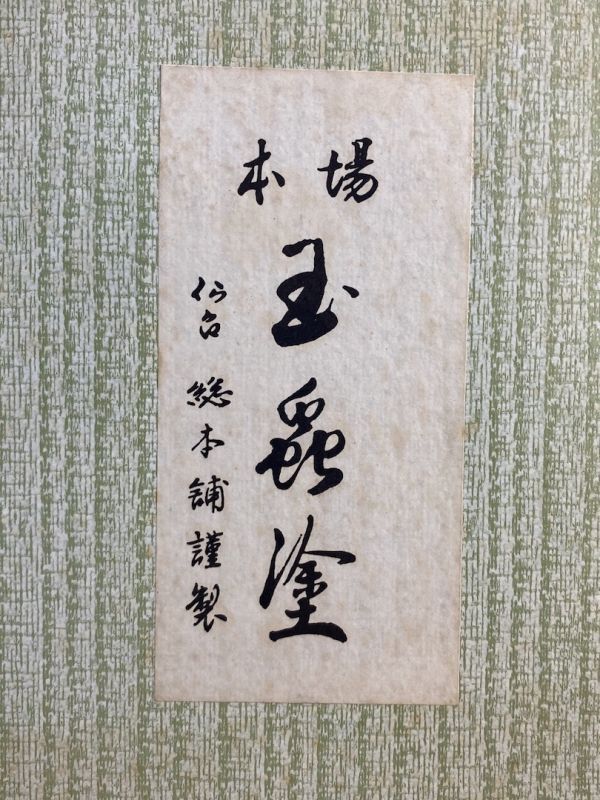 本場
玉蟲塗
仙台 総本舗謹製